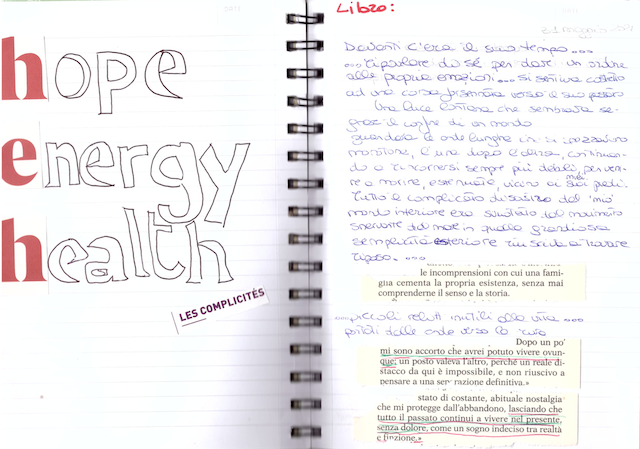 hope
energy
health
LES COMPLICITÉS
Libro:
Davanti c'era il suo tempo....
per dare un ordine
alle proprie emozioni... si sentiva costretto
ad una corsa
Una luce lontana che sembrava se-
gnare il confine di un mondo
guardava le onde lunghe
l'una dopo l'altra, continuan-
do a rincorrersi sempre più deboli, per veni-
re a morire, estenuate, vicino ai miei piedi.
Tutto il complicato disordine del "mio"
mondo interiore era
mare in quella grandiosa
semplicità esteriore riusciva a trovare
riposo....
le incomprensioni con cui una fami-
glia cementa la propria esistenza, senza mai
comprenderne il senso e la storia.
....piccoli relitti inutili alla vita....
portati dalle onde verso la riva
Dopo un po'
mi sono accorto che avrei potuto vivere ovun-
que; un posto valeva l'altro, perché un reale di-
stacco da qui è impossibile, e non riuscivo a
pensare a una separazione definitiva.»
stato di costante, abituale nostalgia
che mi protegge dall'abbandono, lasciando che
tutto il passato continui a vivere nel presente,
senza dolore, come un sogno indeciso tra realtà
e finzione.»